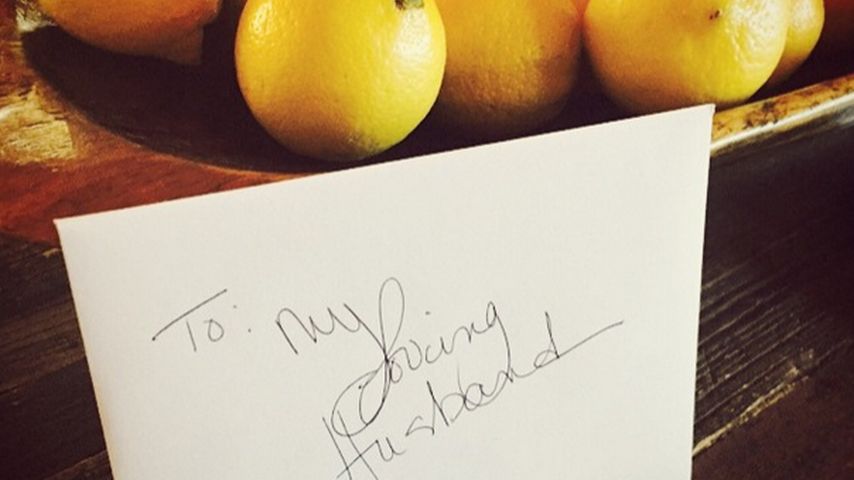 To: My Loving
Husband